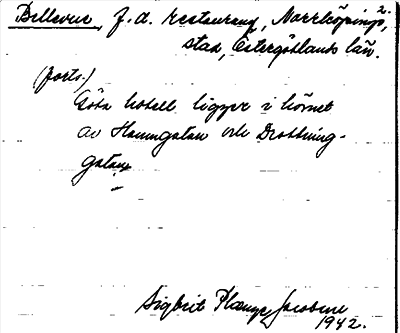 2.
Bellevue, f.d. restaurang, Norrköpings
stad, Östergötlands län.
(forts.)
Göta hotell ligger i hörnet
av Hamngatan och Drottning-
gatan.
Sigbrit Plænge Jacobson
1942.